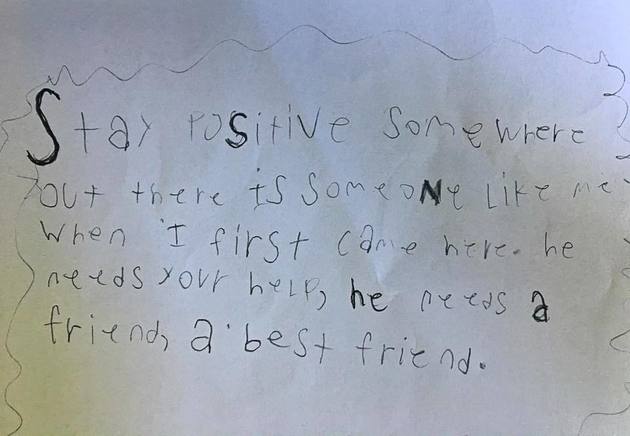 Stay positive somewhere
out there is someone like me
when I first came here. he
needs your help, he needs a
friend, a best friend.